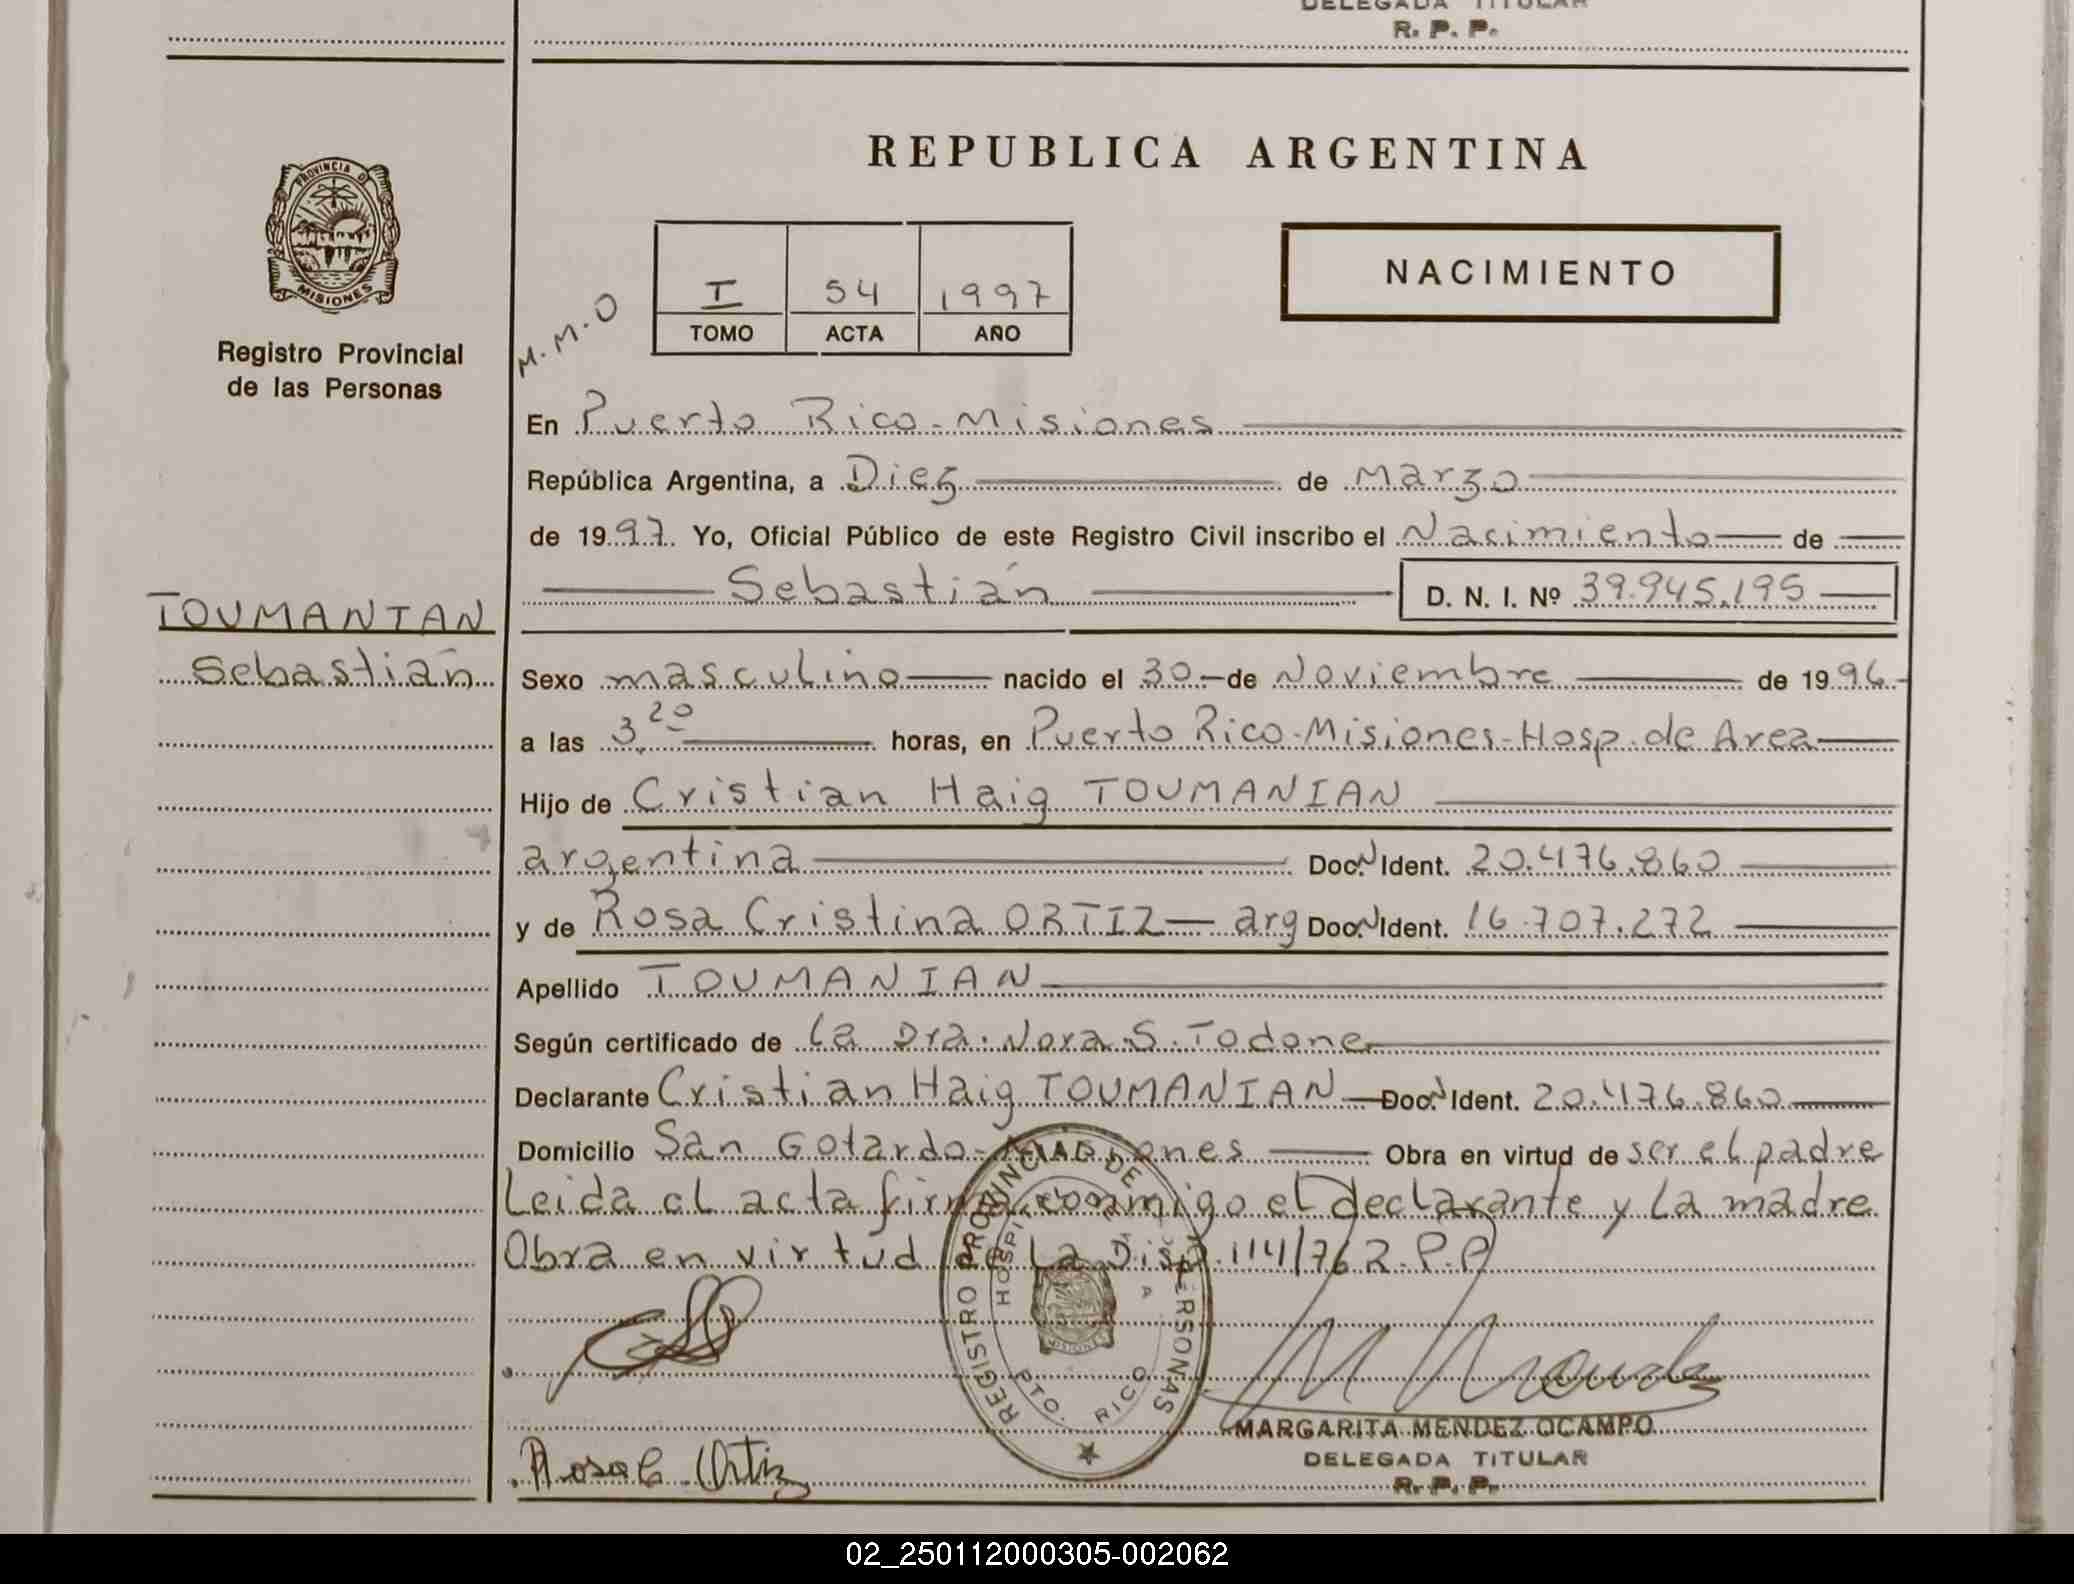 DELEGADA TITULAR
R. P. P.
PROVINCIA DE
MISIONES
Registro Provincial
de las Personas
REPUBLICA ARGENTINA
M.M.O
I 54 1997
TOMO ACTA AÑO
NACIMIENTO
En Puerto Rico-Misiones
República Argentina, a Diez de Marzo
de 1997. Yo, Oficial Público de este Registro Civil inscribo el Nacimiento de
Sebastián D. N. I. Nº 39.945.195
TOUMANIAN
Sebastián
Sexo masculino nacido el 30 de Noviembre de 1996
a las 3,20 horas, en Puerto Rico-Misiones-Hosp. de Area
Hijo de Cristian Haig TOUMANIAN
argentina Doc. Ident. 20.476.860
y de Rosa Cristina ORTIZ - arg Doc. Ident. 16.707.272
Apellido TOUMANIAN
Según certificado de la Dra. Nora S. Todone
Declarante Cristian Haig TOUMANIAN Doc. Ident. 20.476.860
Domicilio San Gotardo-Misiones Obra en virtud de ser el padre
Leida el acta firma conmigo el declarante y la madre
Obra en virtud de la Disp. 114/76 R.P.P
REGISTRO PROVINCIAL DE PERSONAS
HOSPI
MISIONES
PTO. RICO
MARGARITA MENDEZ OCAMPO
DELEGADA TITULAR
R. P. P.
Rosa C Ortiz
02_250112000305-002062